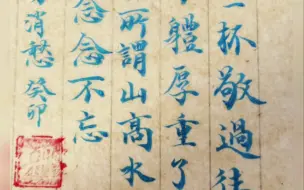 一杯敬過往
體厚重了
所謂山高水
念念不忘
消愁 癸卯